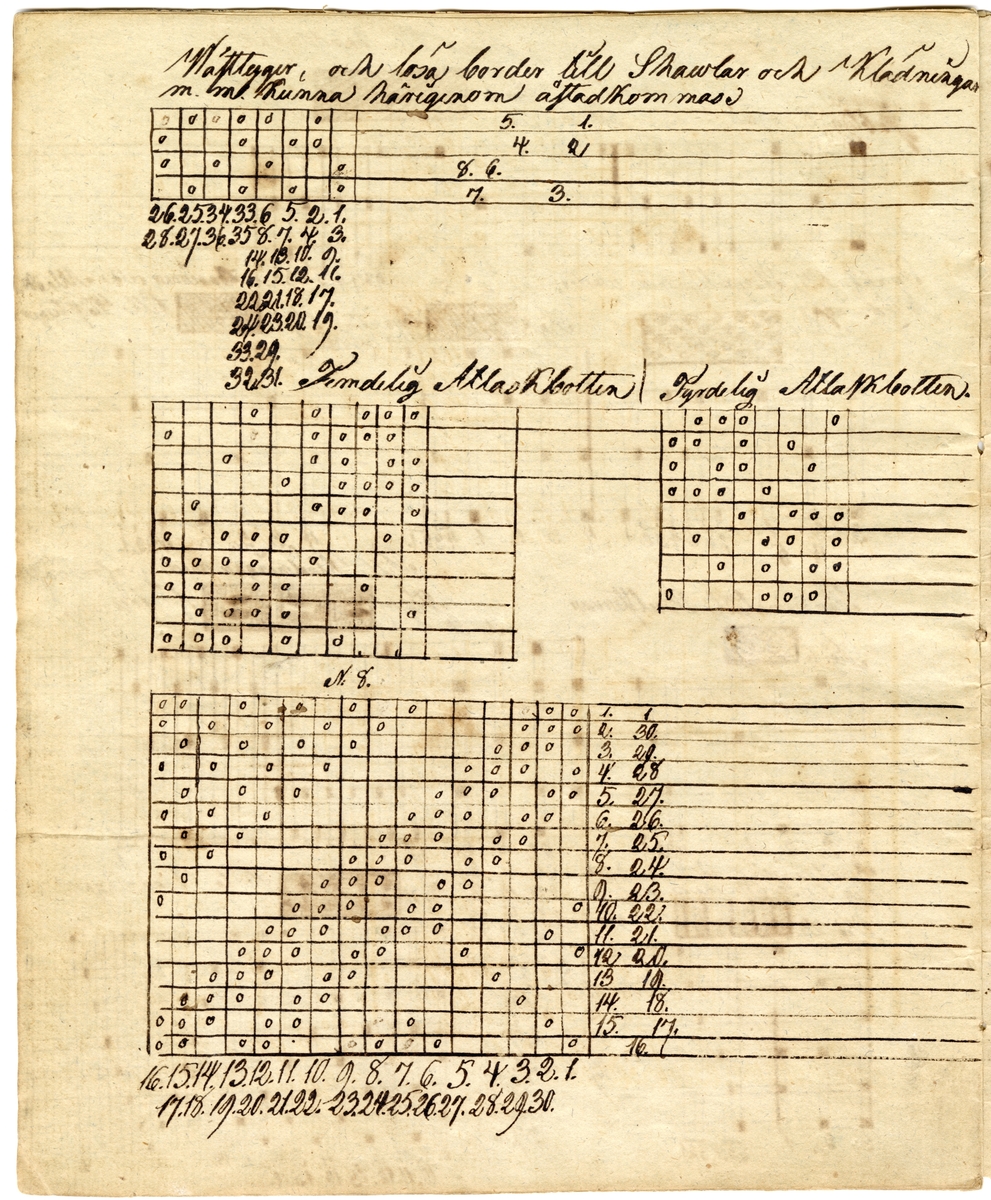 Wäfttygger, och lösa border till Shawlar och Klädningar
m. m. kunna härigenom åstadkommas
5. 1.
4. 2
8. 6.
7. 3.
26.25.34.33.6 5. 2. 1.
28.27.36.35 8. 7. 4. 3.
14.13.10. 9.
16.15.12.11.
22.21.18.17.
24.23.20.19.
33.29.
32.31.
Femdelig Atlaskbotten
Fyrdelig Atlaskbotten.
N. 8.
1. 1
2. 30.
3. 29.
4. 28
5. 27.
6. 26.
7. 25.
8. 24.
9. 23.
10. 22.
11. 21.
12. 20.
13 19.
14. 18.
15. 17.
16.
16.15.14.13.12.11. 10. 9. 8. 7. 6. 5. 4. 3. 2. 1.
17.18. 19.20.21.22. 23.24.25.26.27. 28.29.30.